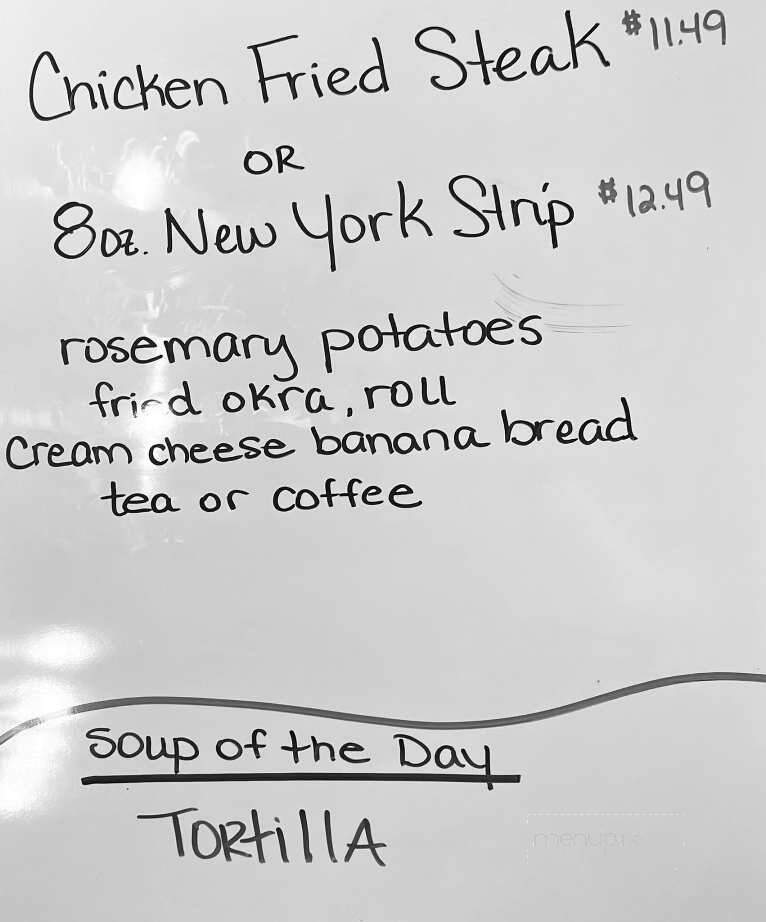 Chicken Fried Steak $11.49
OR
8oz. New York Strip $12.49
rosemary potatoes
fried okra, roll
Cream cheese banana bread
tea or coffee
Soup of the Day
TORtillA